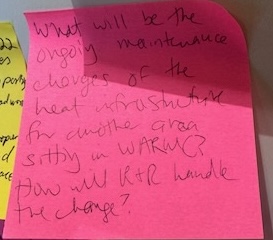 22
es
What will be the
ongoing maintenance
charges of the
heat infrastructure
for another area
sitting in WARMC?
How will R+R handle
the change?